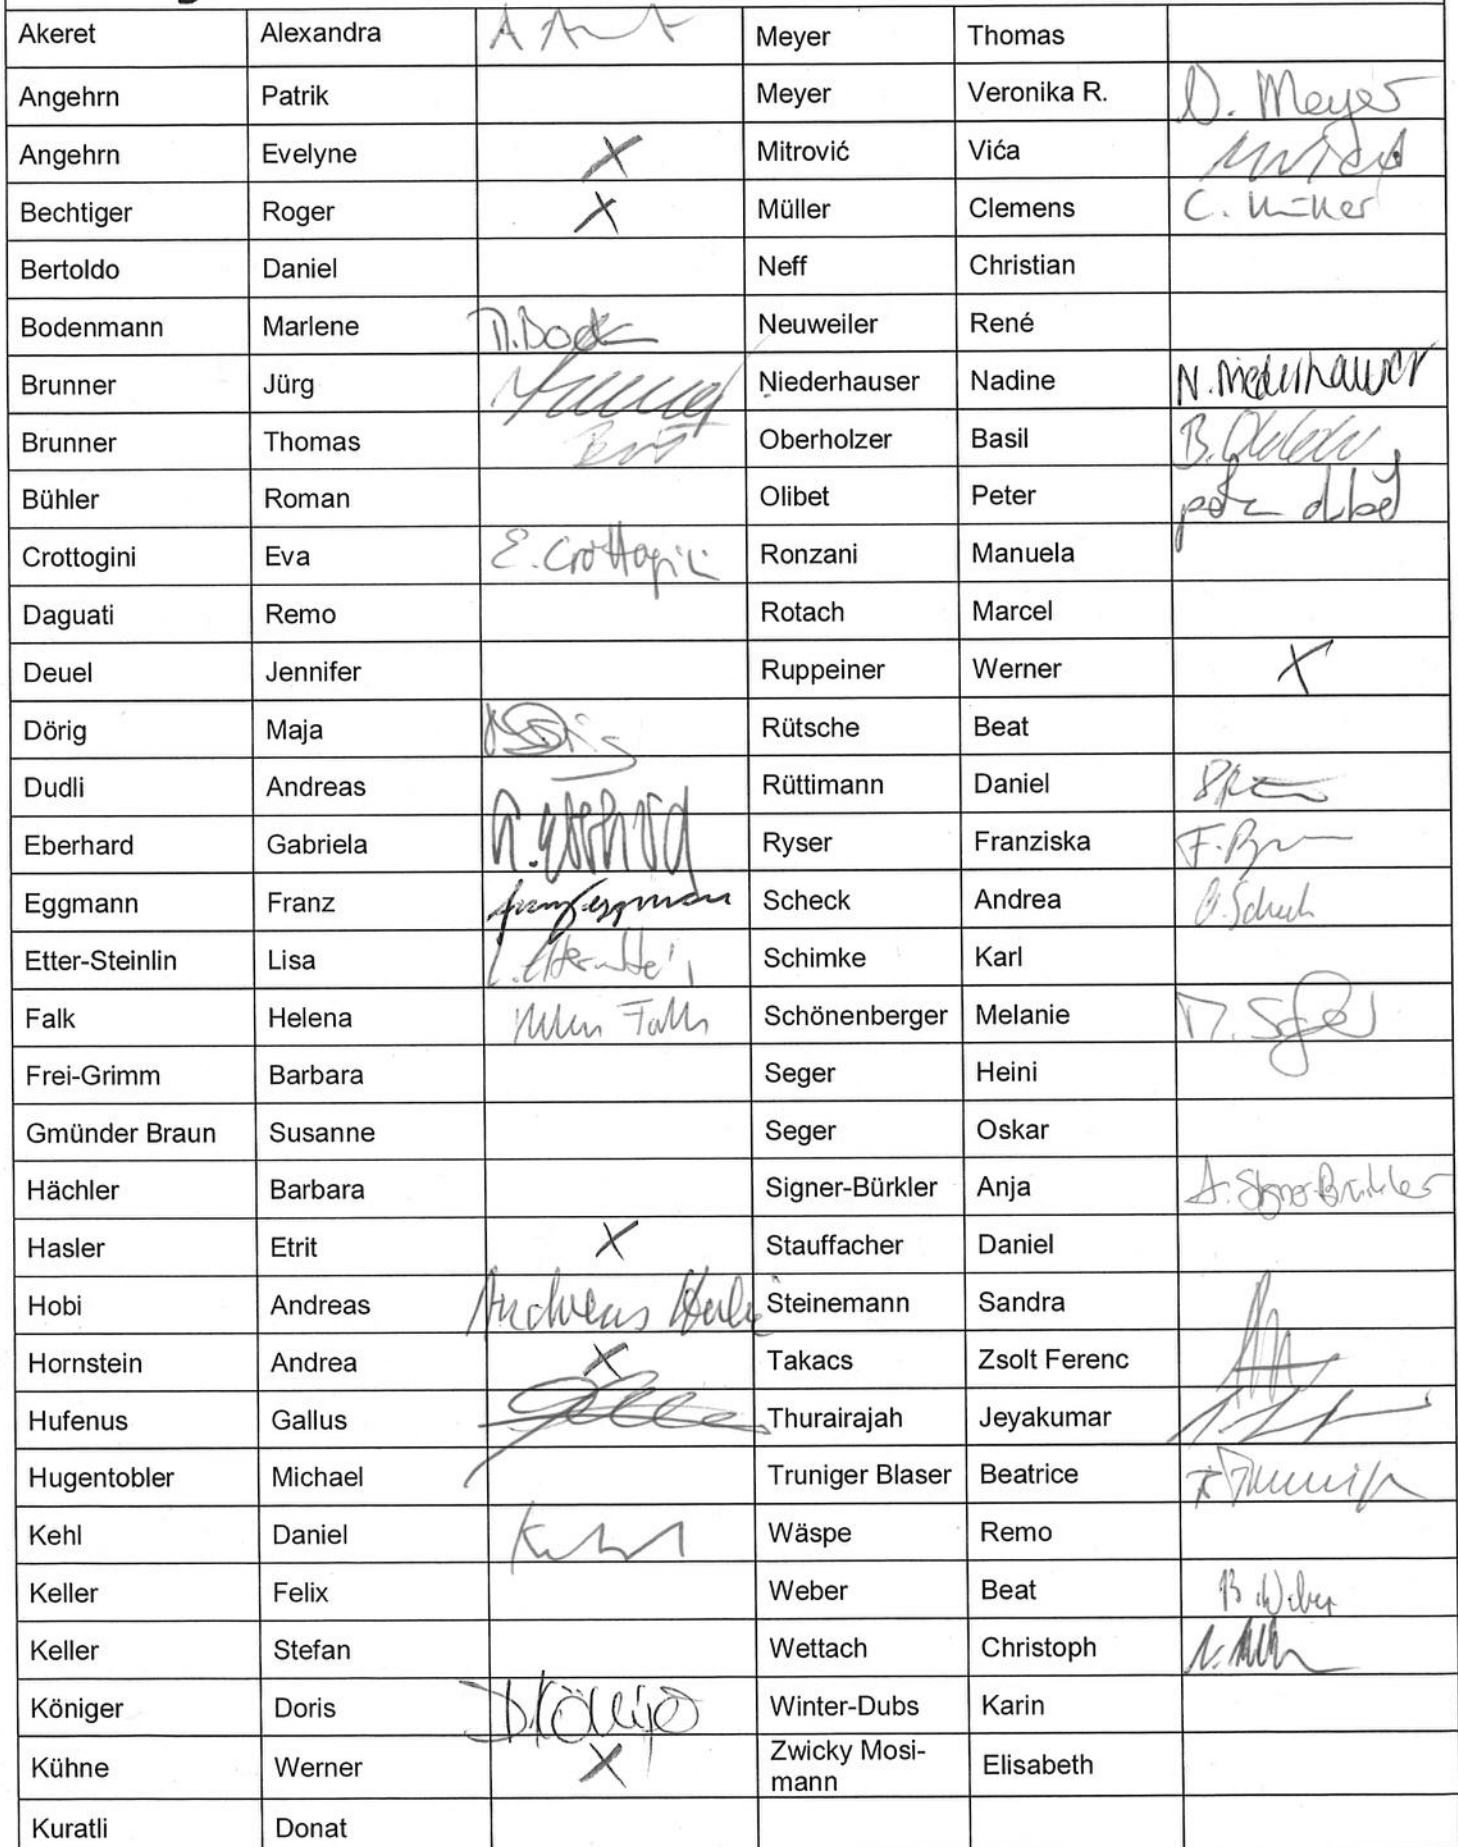 Akeret Alexandra Meyer Thomas
Angehrn Patrik Meyer Veronika R. Meyer
Angehrn Evelyne X Mitrović Vića
Bechtiger Roger X Müller Clemens C. Müller
Bertoldo Daniel Neff Christian
Bodenmann Marlene Neuweiler René
Brunner Jürg Niederhauser Nadine N. Niederhauser
Brunner Thomas Oberholzer Basil
Bühler Roman Olibet Peter
Crottogini Eva E. Crottogini Ronzani Manuela
Daguati Remo Rotach Marcel
Deuel Jennifer Ruppeiner Werner X
Dörig Maja Rütsche Beat
Dudli Andreas Rüttimann Daniel
Eberhard Gabriela Ryser Franziska
Eggmann Franz Scheck Andrea
Etter-Steinlin Lisa Schimke Karl
Falk Helena Schönenberger Melanie
Frei-Grimm Barbara Seger Heini
Gmünder Braun Susanne Seger Oskar
Hächler Barbara Signer-Bürkler Anja
Hasler Etrit X Stauffacher Daniel
Hobi Andreas Andreas Steinemann Sandra
Hornstein Andrea X Takacs Zsolt Ferenc
Hufenus Gallus Thurairajah Jeyakumar
Hugentobler Michael Truniger Blaser Beatrice
Kehl Daniel Wäspe Remo
Keller Felix Weber Beat B. Weber
Keller Stefan Wettach Christoph
Königer Doris D. Königer Winter-Dubs Karin
Kühne Werner X Zwicky Mosi-
mann Elisabeth
Kuratli Donat